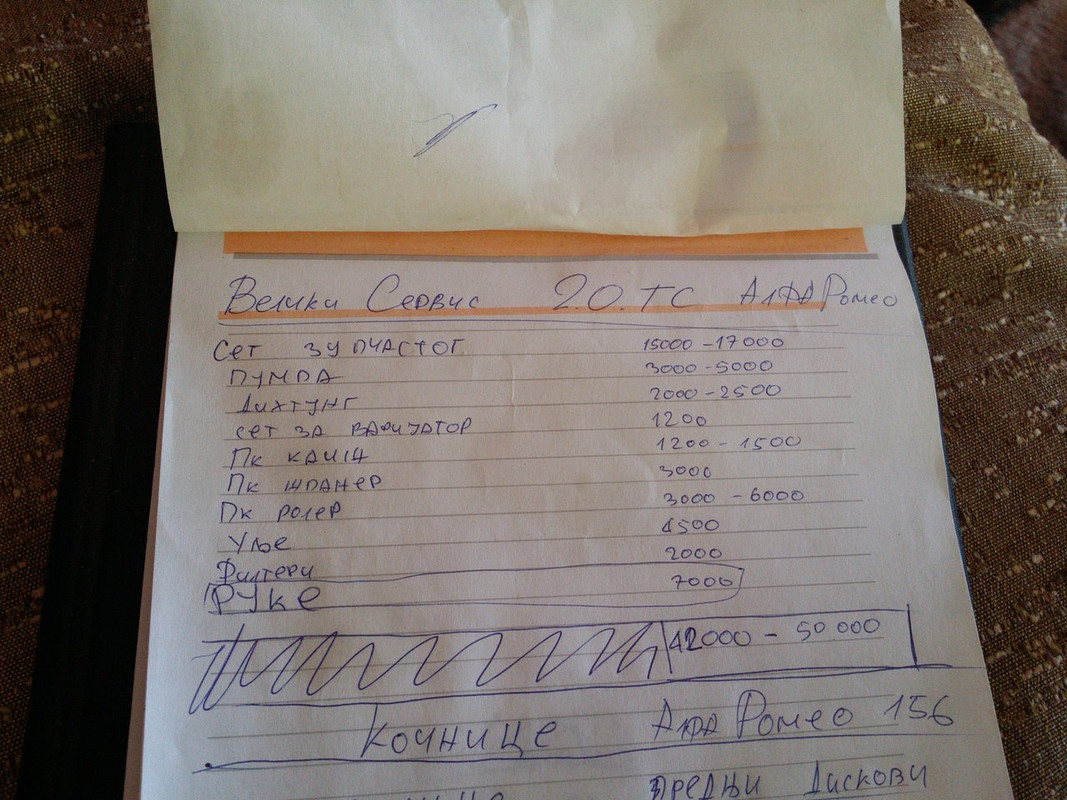 Велики Сервис 2.0. ТС АлфА Ромео
Сет зупчастог 15000 - 17000
Пумпа 3000 - 5000
Дихтунг 2000 - 2500
сет за варијатор 1200
Пк каиш 1200 - 1500
Пк шпанер 3000
Пк ролер 3000 - 6000
Уље 4500
Филтери 2000
Руке 7000
42000 - 50 000
Кочнице Алфа Ромео 156
предњи Дискови